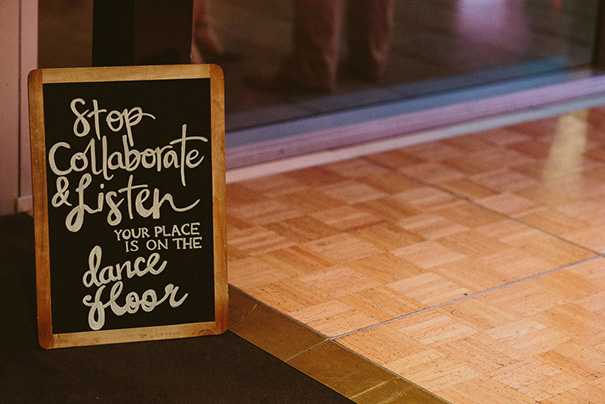 Stop
Collaborate
& Listen
YOUR PLACE
IS ON THE
dance
floor